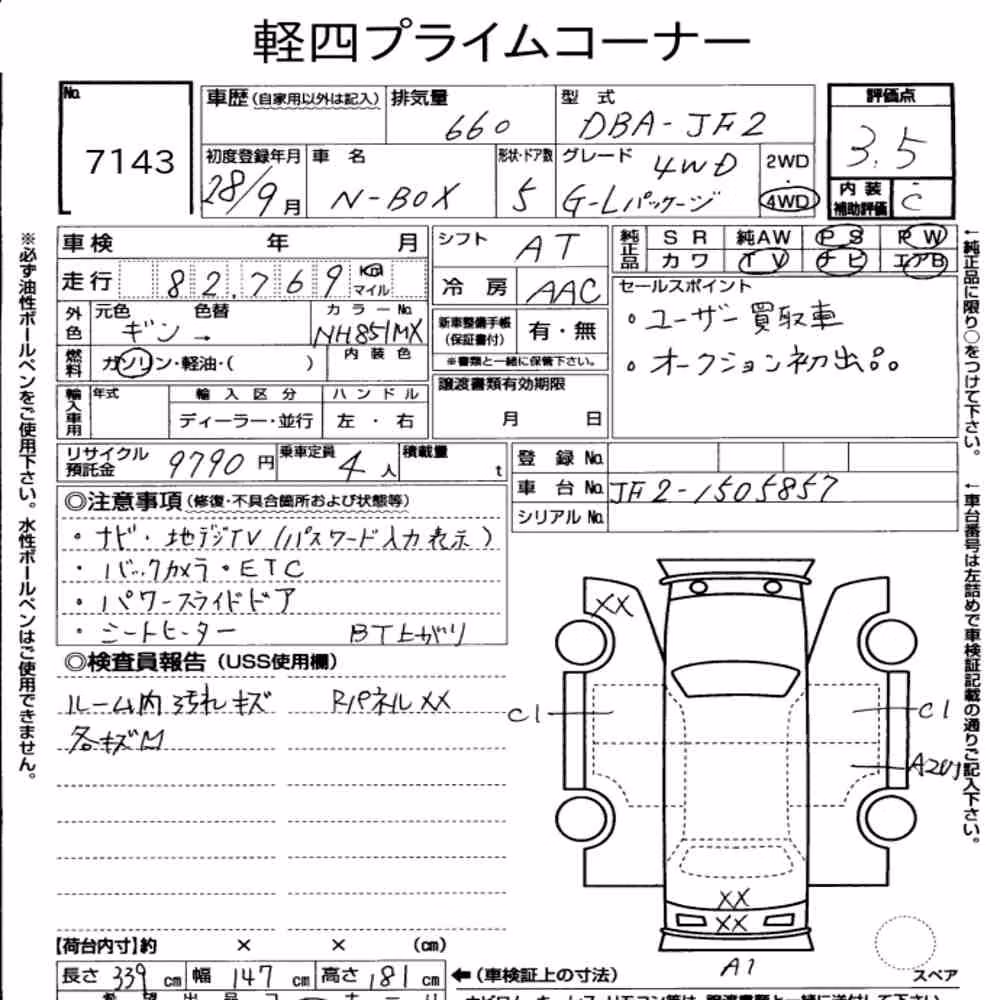 軽四プライムコーナー
No. 7143
車歴(自家用以外は記入) 排気量 660 型式 DBA-JF2
評価点 3.5
初度登録年月 28/9月 車名 N-BOX 形状・ドア数 5 グレード 4WD G-Lパッケージ 2WD・4WD
内装補助評価 C
車検 年 月 シフト AT
純正品 SR 純AW PS PW
カワ TV ナビ エアB
走行 82,769 Km マイル 冷房 AAC
セールスポイント
・ユーザー買取車
・オークション初出。
外色 元色 ギン→ 色替 カラーNo. NH851MX
新車整備手帳(保証書付) 有・無
※書類と一緒に保管下さい。
燃料 ガソリン・軽油・( ) 内装色
譲渡書類有効期限
月 日
輸入車用 年式 輸入区分 ハンドル
ディーラー・並行 左・右
リサイクル預託金 9790円 乗車定員 4人 積載量 t
登録No.
車台No. JF2-1505857
シリアルNo.
◎注意事項(修復・不具合箇所および状態等)
・ナビ・地デジTV(パスワード入力表示)
・バックカメラ・ETC
・パワースライドドア
・シートヒーター BT上がり
◎検査員報告(USS使用欄)
ルーム内汚れキズ Rパネル XX
各キズM
XX
C1
C1
XX
XX
A1
スペア
【荷台内寸】約 × × (cm)
長さ 339 cm 幅 147 cm 高さ 181 cm ←(車検証上の寸法)
※必ず油性ボールペンをご使用下さい。水性ボールペンはご使用できません。
←純正品に限り○をつけて下さい。
←車台番号は左詰めで車検証記載の通りご記入下さい。